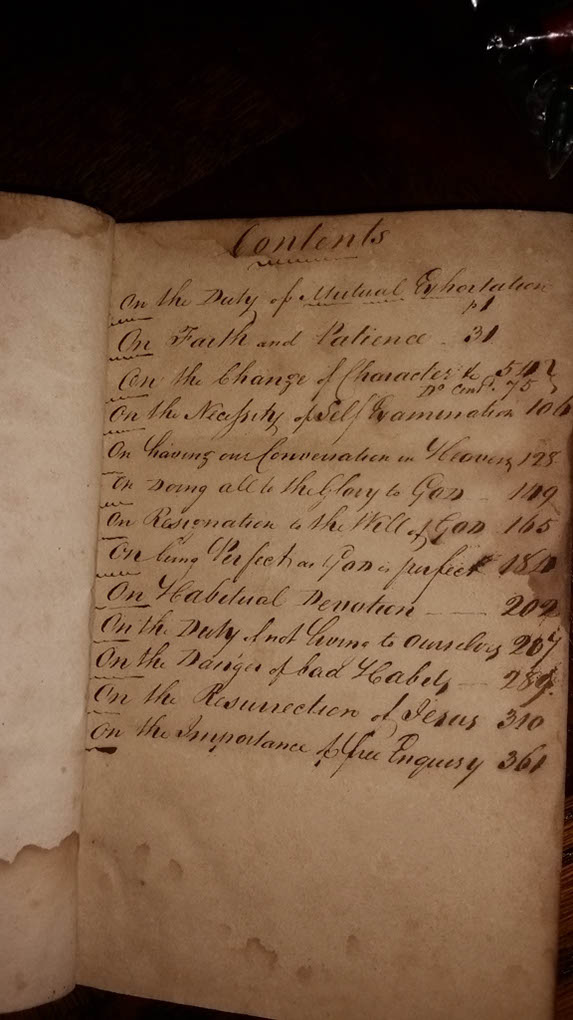 Contents
On the Duty of Mutual Exhortation
p 1
On Faith and Patience 31
On the Change of Character &c
Do Cont. 75
On the Necessity of Self Examination 106
On having our Conversation in Heaven 128
On Doing all to the Glory to God 149
On Resignation to the Will of God 165
On being Perfect as God is perfect
On Habitual Devotion 209
On the Duty of not living to ourselves
On the Danger of bad Habits
On the Resurrection of Jesus 310
On the Importance of free Enquiry 361